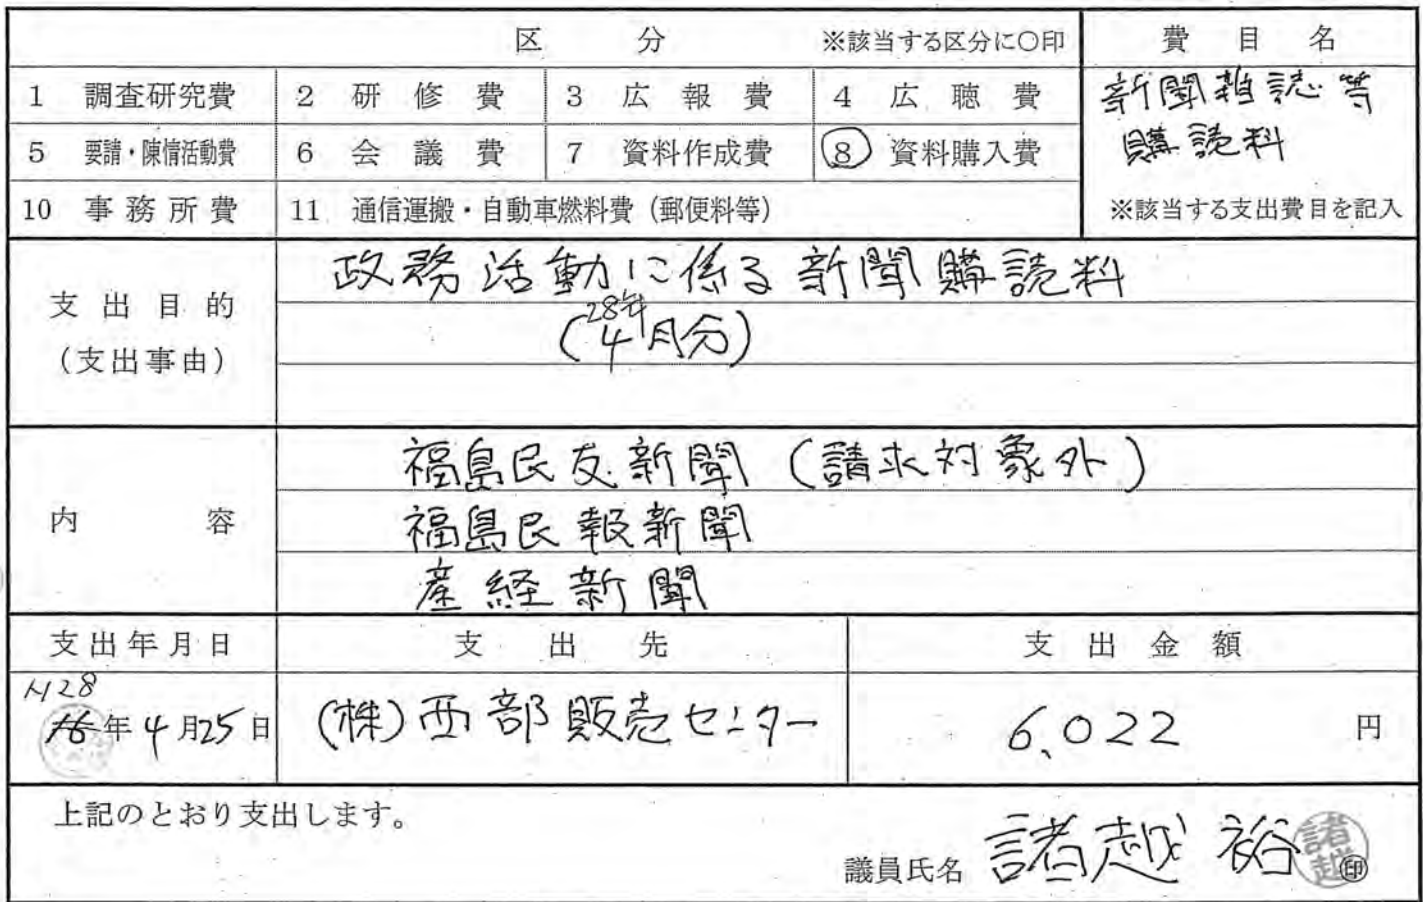 区 分 ※該当する区分に〇印 費 目 名
1 調査研究費 2 研 修 費 3 広 報 費 4 広 聴 費 新聞雑誌等
5 要請・陳情活動費 6 会 議 費 7 資料作成費 8 資料購入費 購読料
10 事 務 所 費 11 通信運搬・自動車燃料費（郵便料等） ※該当する支出費目を記入
政務活動に係る新聞購読料
支 出 目 的 28年
(4月分)
（支出事由）
福島民友新聞(請求対象外)
内 容 福島民報新聞
産経新聞
支出年月日 支 出 先 支 出 金 額
H28
年4月25日 (株)西部販売センター 6,022 円
上記のとおり支出します。
議員氏名 諸越 裕 ㊞
諸越